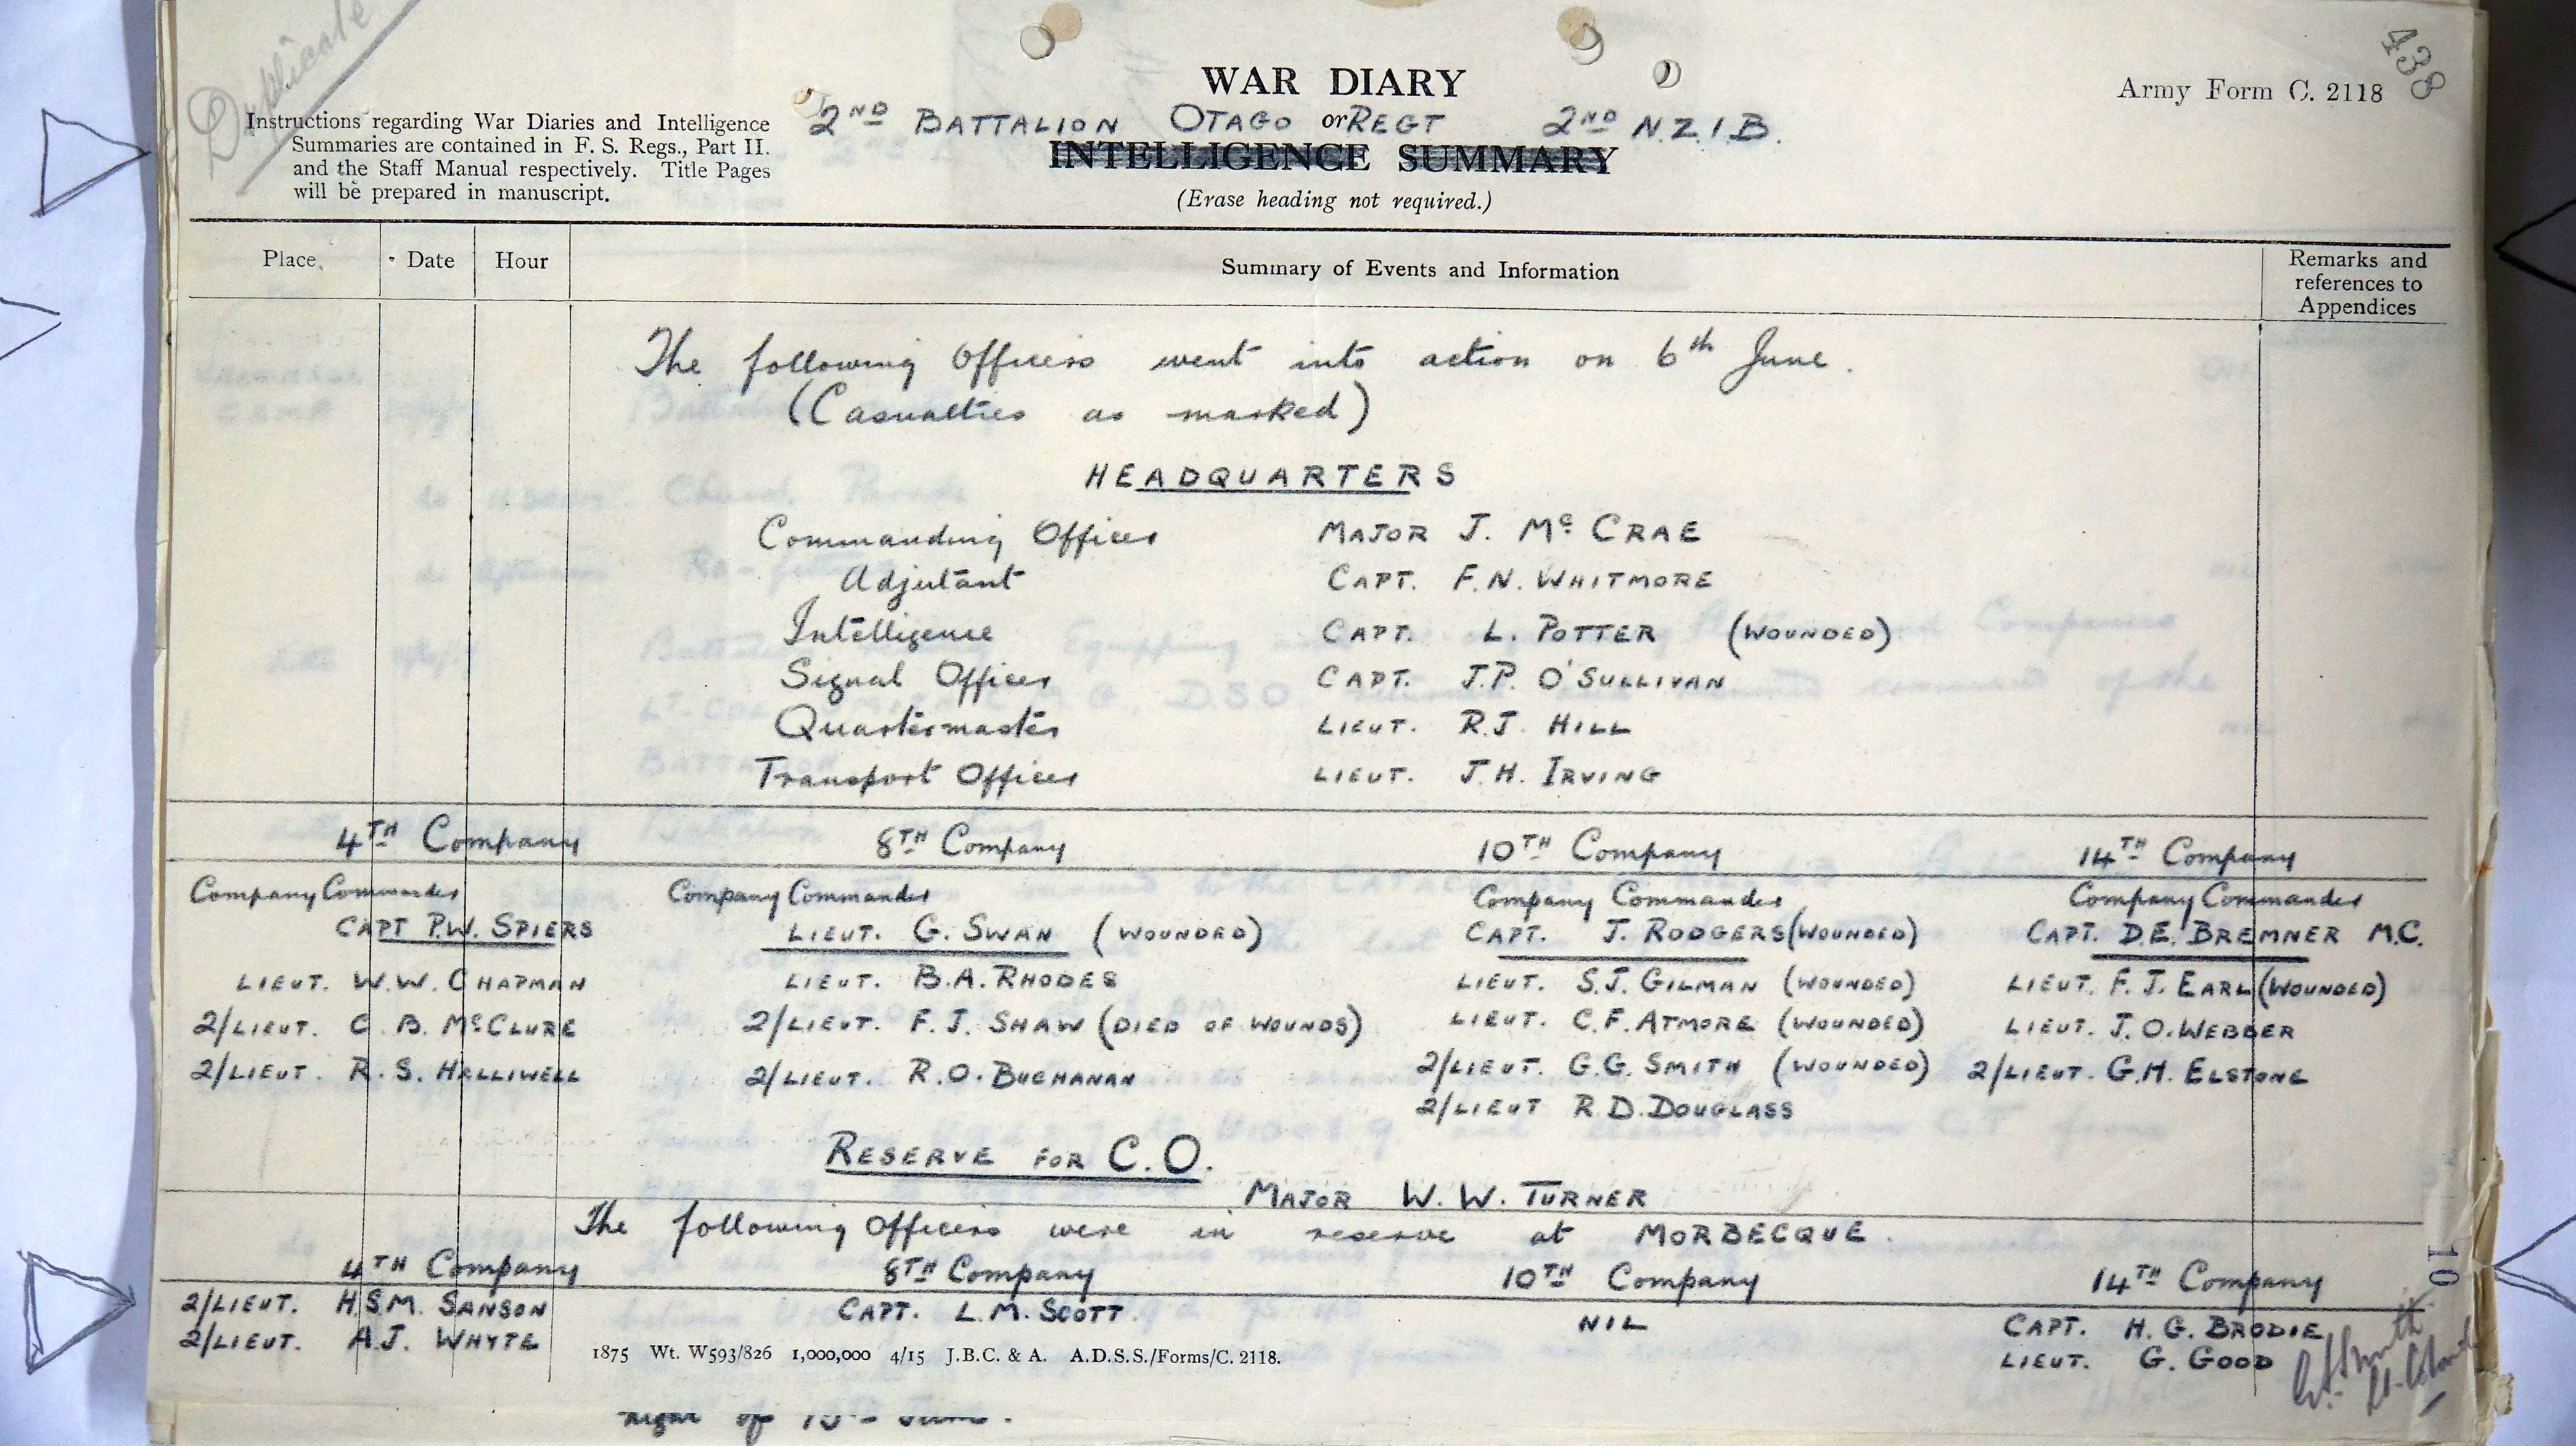 Duplicate
438
WAR DIARY
Army Form C. 2118
2ND BATTALION OTAGO or REGT 2ND N.Z.I.B.
INTELLIGENCE SUMMARY
(Erase heading not required.)
Instructions regarding War Diaries and Intelligence
Summaries are contained in F. S. Regs., Part II.
and the Staff Manual respectively. Title Pages
will be prepared in manuscript.
Place Date Hour Summary of Events and Information Remarks and
references to
Appendices
The following Officers went into action on 6th June.
(Casualties as marked)
HEADQUARTERS
Commanding Officer MAJOR J. McCRAE
Adjutant CAPT. F.N. WHITMORE
Intelligence CAPT. L. POTTER (WOUNDED)
Signal Officer CAPT. J.P. O'SULLIVAN
Quartermaster LIEUT. R.J. HILL
Transport Officer LIEUT. J.H. IRVING
4TH Company 8TH Company 10TH Company 14TH Company
Company Commander Company Commander Company Commander Company Commander
CAPT P.W. SPIERS LIEUT. G. SWAN (WOUNDED) CAPT. J. RODGERS (WOUNDED) CAPT. D.E. BREMNER M.C.
LIEUT. W.W. CHAPMAN LIEUT. B.A. RHODES LIEUT. S.J. GILMAN (WOUNDED) LIEUT. F.J. EARL (WOUNDED)
2/LIEUT. C.B. McCLURE 2/LIEUT. F.J. SHAW (DIED OF WOUNDS) LIEUT. C.F. ATMORE (WOUNDED) LIEUT. J.O. WEBBER
2/LIEUT. R.S. HALLIWELL 2/LIEUT. R.O. BUCHANAN 2/LIEUT. G.G. SMITH (WOUNDED) 2/LIEUT. G.H. ELSTONE
2/LIEUT R.D. DOUGLASS
RESERVE FOR C.O.
MAJOR W.W. TURNER
The following Officers were in reserve at MORBECQUE.
4TH Company 8TH Company 10TH Company 14TH Company
2/LIEUT. H.S.M. SANSON CAPT. L.M. SCOTT. NIL CAPT. H.G. BRODIE
2/LIEUT. A.J. WHYTE LIEUT. G. GOOD
10
1875 Wt. W593/826 1,000,000 4/15 J.B.C. & A. A.D.S.S./Forms/C. 2118.